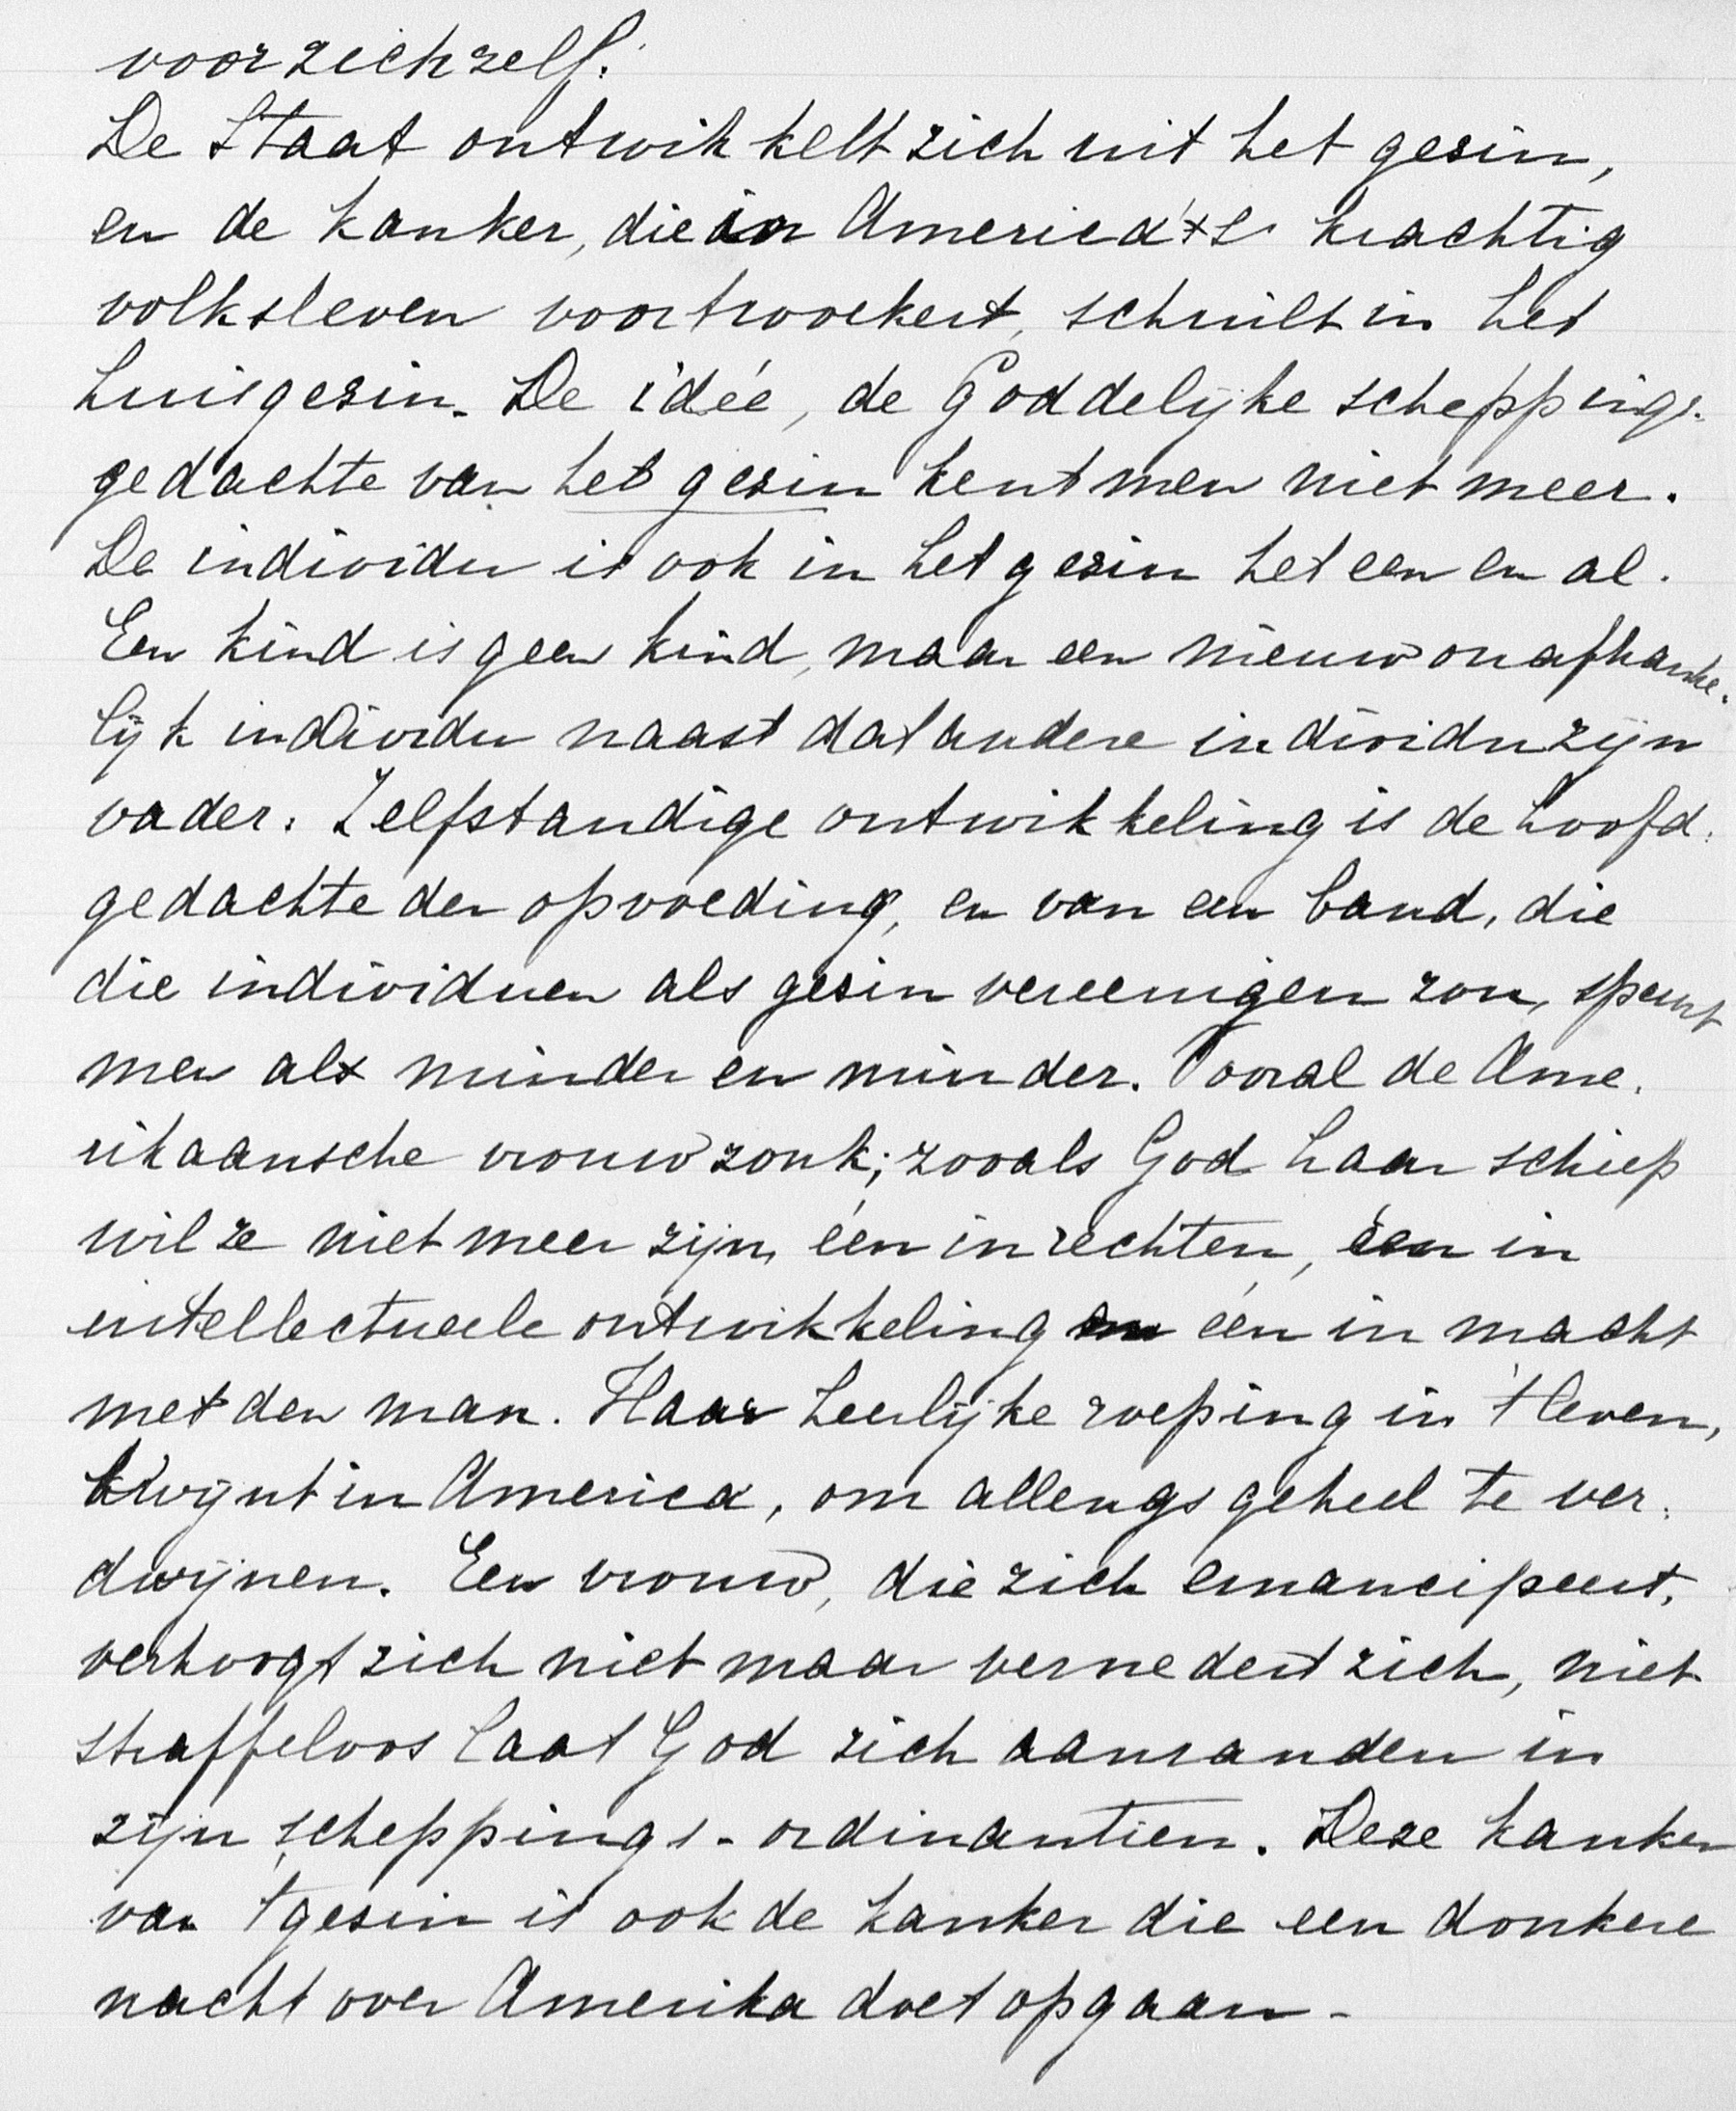 voor zichzelf.
De Staat ontwikkelt zich uit het gezin,
en de kanker, die in America's krachtig
volksleven voortwoekert, schuilt in het
huisgezin. De idée, de Goddelijke scheppings-
gedachte van het gezin kent men niet meer.
De individu is ook in het gezin het een en al.
Een kind is geen kind, maar een nieuw onafhanke-
lijk individu naast dat andere individu zijn
vader. Zelfstandige ontwikkeling is de hoofd-
gedachte der opvoeding, en van een band, die
die individuen als gezin vereenigen zou, speurt
men als minder en minder. Vooral de Ame-
rikaansche vrouw zonk; zooals God haar schiep
wil ze niet meer zijn, één in rechten, één in
intellectueele ontwikkeling én één in macht
met den man. Haar heerlijke roeping in 't leven,
kwijnt in America, om allengs geheel te ver-
dwijnen. Een vrouw, die zich emancipeert,
verhoogt zich niet maar vernedert zich, niet
straffeloos laat God zich aanranden in
zijn scheppings-ordinantien. Deze kanker
van 't gezin is ook de kanker die een donkere
nacht over Amerika doet opgaan -